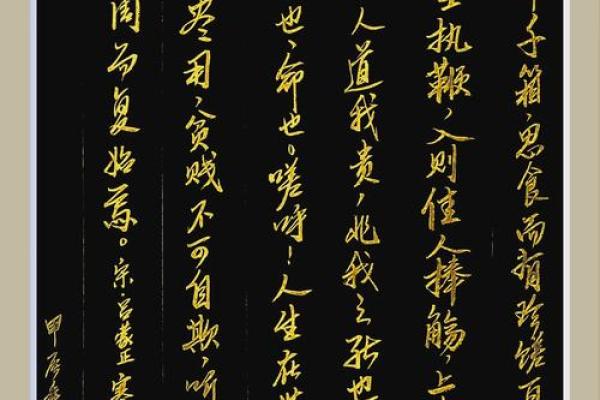 千箱，思食而有珍馐百
执鞭，入则佳人捧觞，上
人道我贵，非我之能也
也、命也。嗟呼！人生在世
尽用，贫贱不可自欺，听
周而复始焉。宋·吕蒙正 寒
甲辰